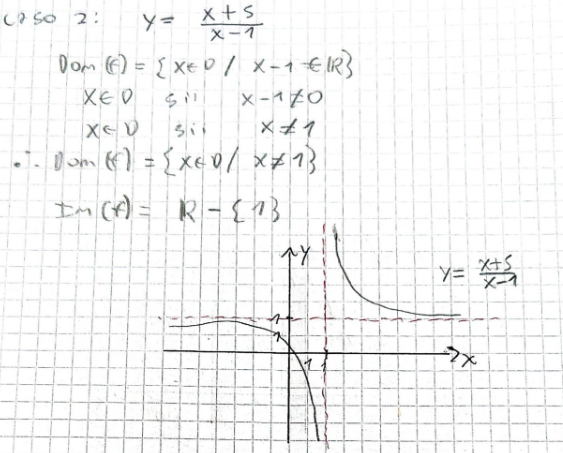 caso 2: y = x+5/x-1
Dom(f) = {x∈D / x-1 ∈ R}
x∈D sii x-1≠0
x∈D sii x≠1
∴ Dom(f) = {x∈D / x≠1}
Im(f) = R - {1}
y
y = x+5/x-1
1
1
1 1
x